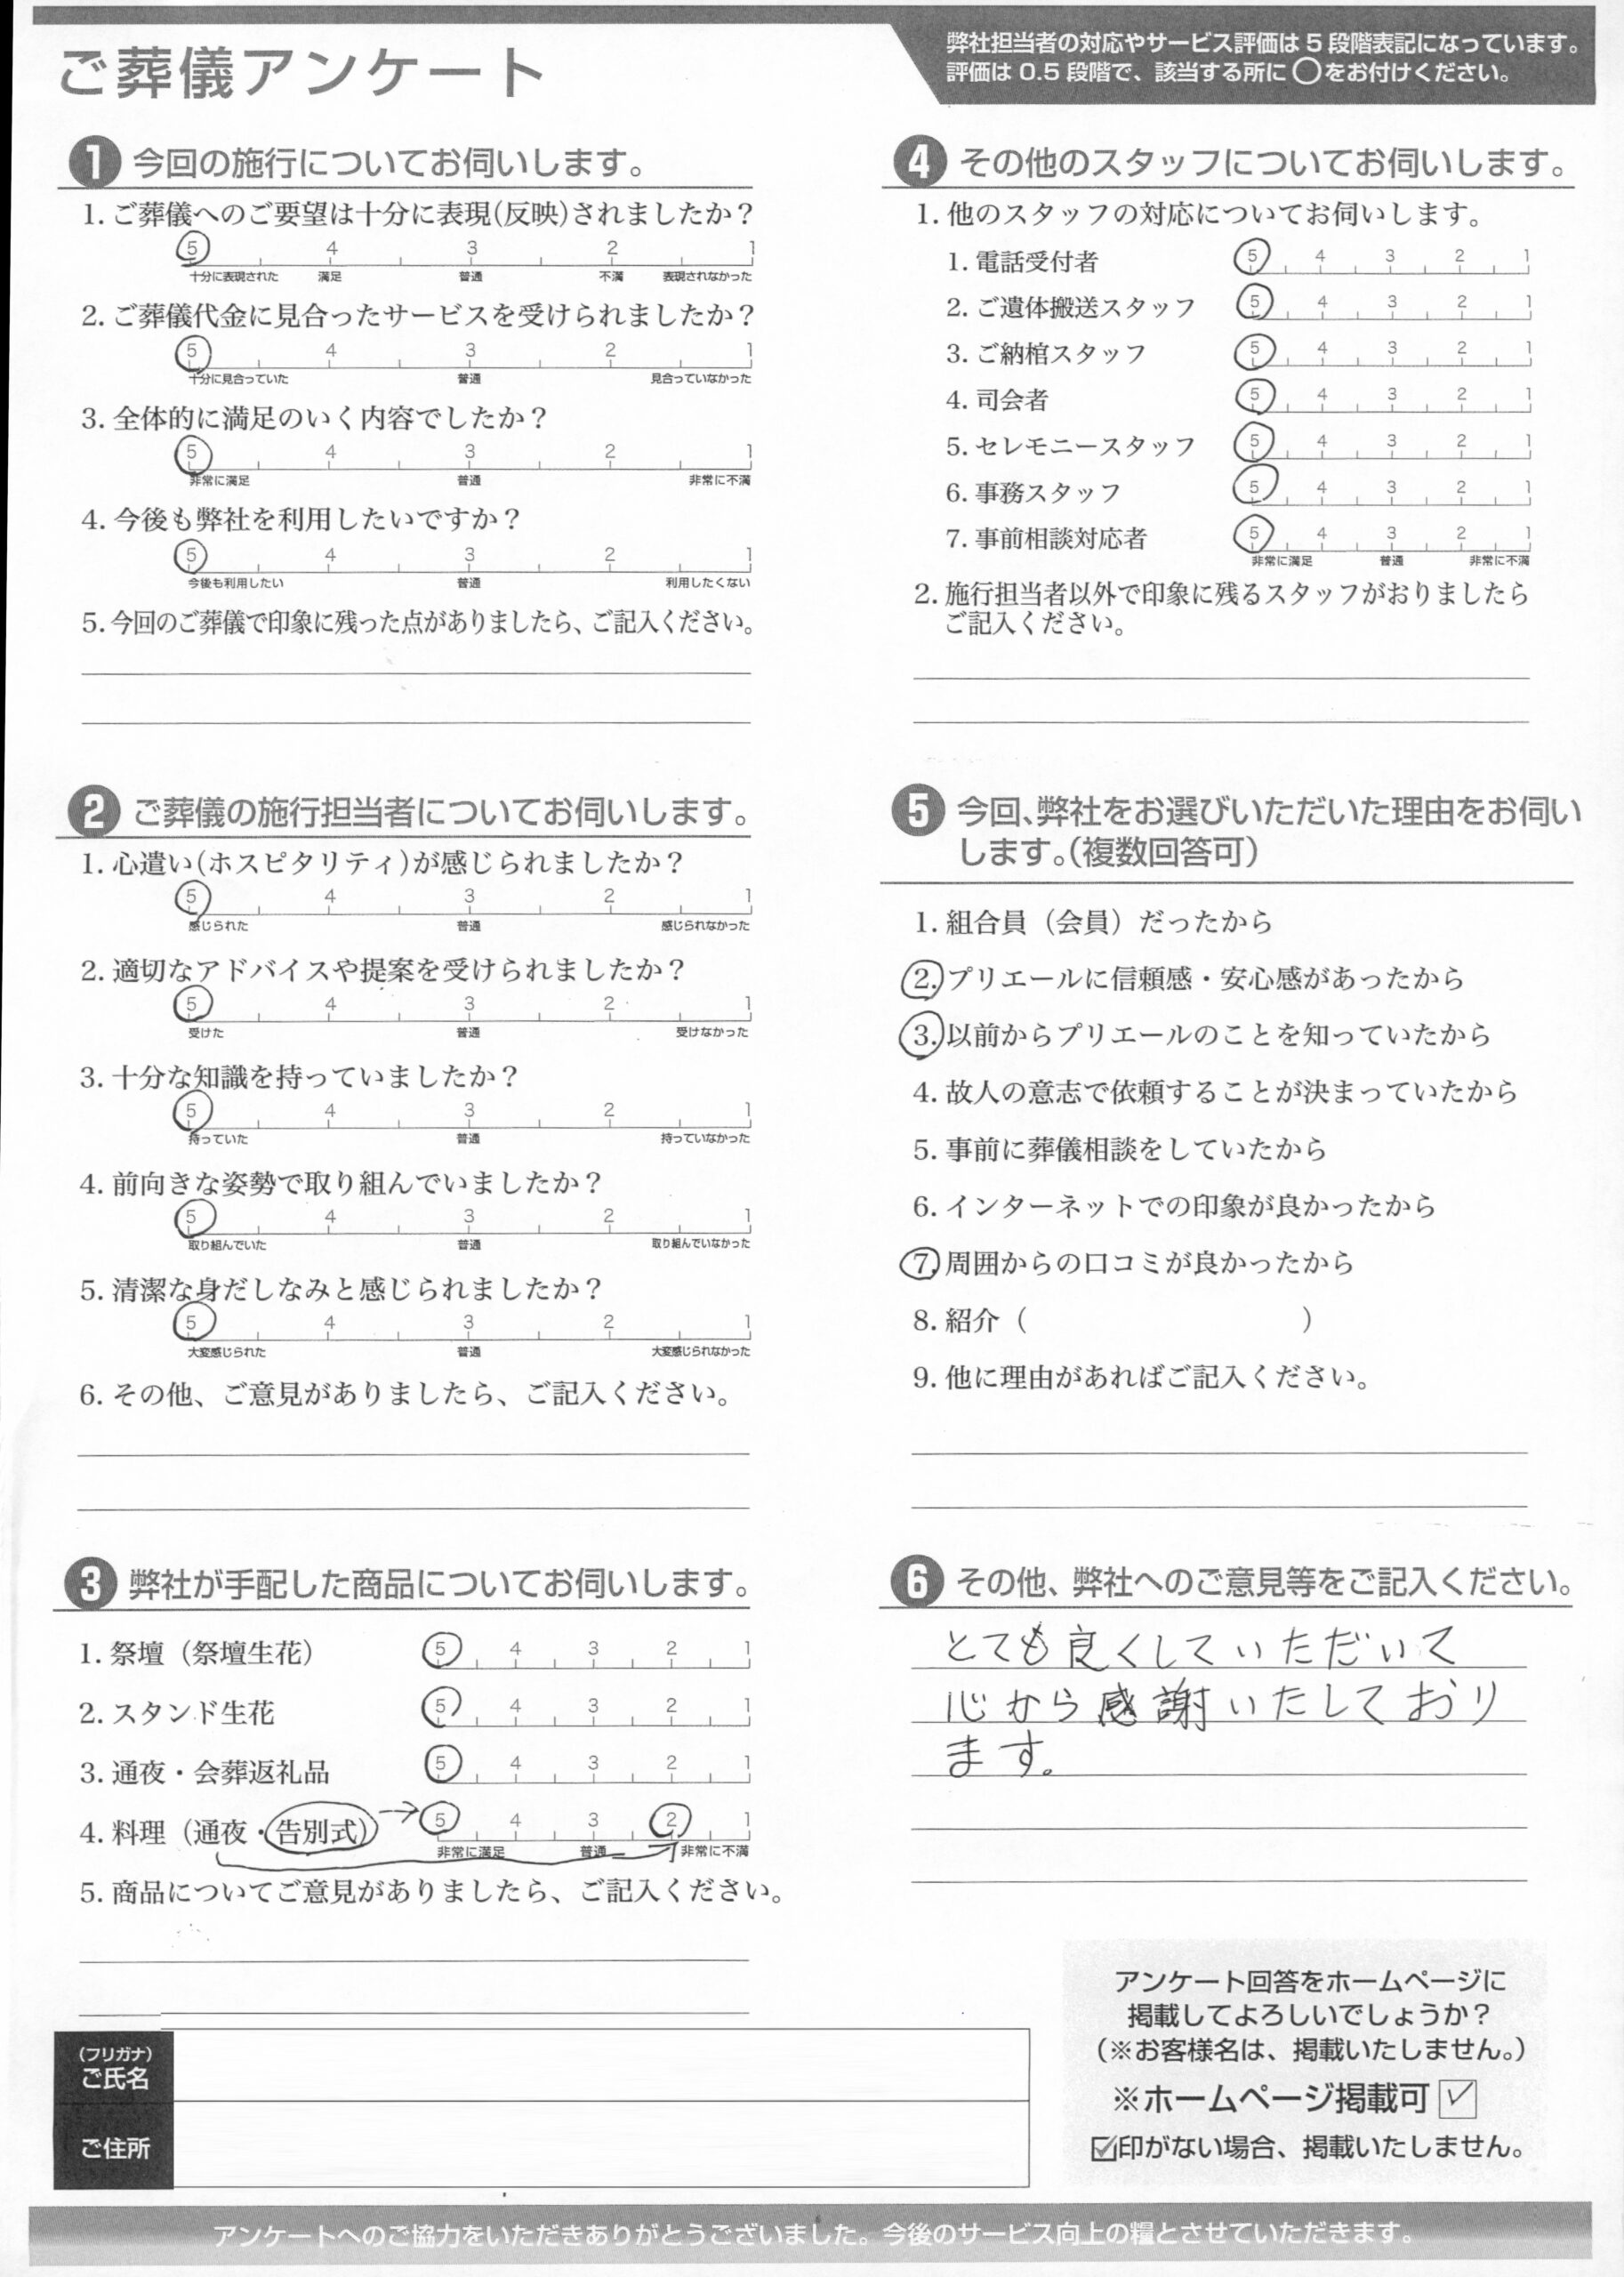 ご葬儀アンケート
弊社担当者の対応やサービス評価は 5 段階表記になっています。
評価は 0.5 段階で、該当する所に〇をお付けください。
1 今回の施行についてお伺いします。
1. ご葬儀へのご要望は十分に表現(反映)されましたか？
5 4 3 2 1
十分に表現された 満足 普通 不満 表現されなかった
2. ご葬儀代金に見合ったサービスを受けられましたか？
5 4 3 2 1
十分に見合っていた 普通 見合っていなかった
3. 全体的に満足のいく内容でしたか？
5 4 3 2 1
非常に満足 普通 非常に不満
4. 今後も弊社を利用したいですか？
5 4 3 2 1
今後も利用したい 普通 利用したくない
5. 今回のご葬儀で印象に残った点がありましたら、ご記入ください。
2 ご葬儀の施行担当者についてお伺いします。
1. 心遣い(ホスピタリティ)が感じられましたか？
5 4 3 2 1
感じられた 普通 感じられなかった
2. 適切なアドバイスや提案を受けられましたか？
5 4 3 2 1
受けた 普通 受けなかった
3. 十分な知識を持っていましたか？
5 4 3 2 1
持っていた 普通 持っていなかった
4. 前向きな姿勢で取り組んでいましたか？
5 4 3 2 1
取り組んでいた 普通 取り組んでいなかった
5. 清潔な身だしなみと感じられましたか？
5 4 3 2 1
大変感じられた 普通 大変感じられなかった
6. その他、ご意見がありましたら、ご記入ください。
3 弊社が手配した商品についてお伺いします。
1. 祭壇（祭壇生花） 5 4 3 2 1
2. スタンド生花 5 4 3 2 1
3. 通夜・会葬返礼品 5 4 3 2 1
4. 料理（通夜・告別式） → 5 4 3 2 1
非常に満足 普通 非常に不満
5. 商品についてご意見がありましたら、ご記入ください。
4 その他のスタッフについてお伺いします。
1. 他のスタッフの対応についてお伺いします。
1. 電話受付者 5 4 3 2 1
2. ご遺体搬送スタッフ 5 4 3 2 1
3. ご納棺スタッフ 5 4 3 2 1
4. 司会者 5 4 3 2 1
5. セレモニースタッフ 5 4 3 2 1
6. 事務スタッフ 5 4 3 2 1
7. 事前相談対応者 5 4 3 2 1
非常に満足 普通 非常に不満
2. 施行担当者以外で印象に残るスタッフがおりましたら
ご記入ください。
5 今回、弊社をお選びいただいた理由をお伺い
します。（複数回答可）
1. 組合員（会員）だったから
2. プリエールに信頼感・安心感があったから
3. 以前からプリエールのことを知っていたから
4. 故人の意志で依頼することが決まっていたから
5. 事前に葬儀相談をしていたから
6. インターネットでの印象が良かったから
7. 周囲からの口コミが良かったから
8. 紹介（ ）
9. 他に理由があればご記入ください。
6 その他、弊社へのご意見等をご記入ください。
とても良くしていただいて
心から感謝いたしており
ます。
アンケート回答をホームページに
掲載してよろしいでしょうか？
（※お客様名は、掲載いたしません。）
※ホームページ掲載可 ☑
☑印がない場合、掲載いたしません。
（フリガナ）
ご氏名
ご住所
アンケートへのご協力をいただきありがとうございました。今後のサービス向上の糧とさせていただきます。